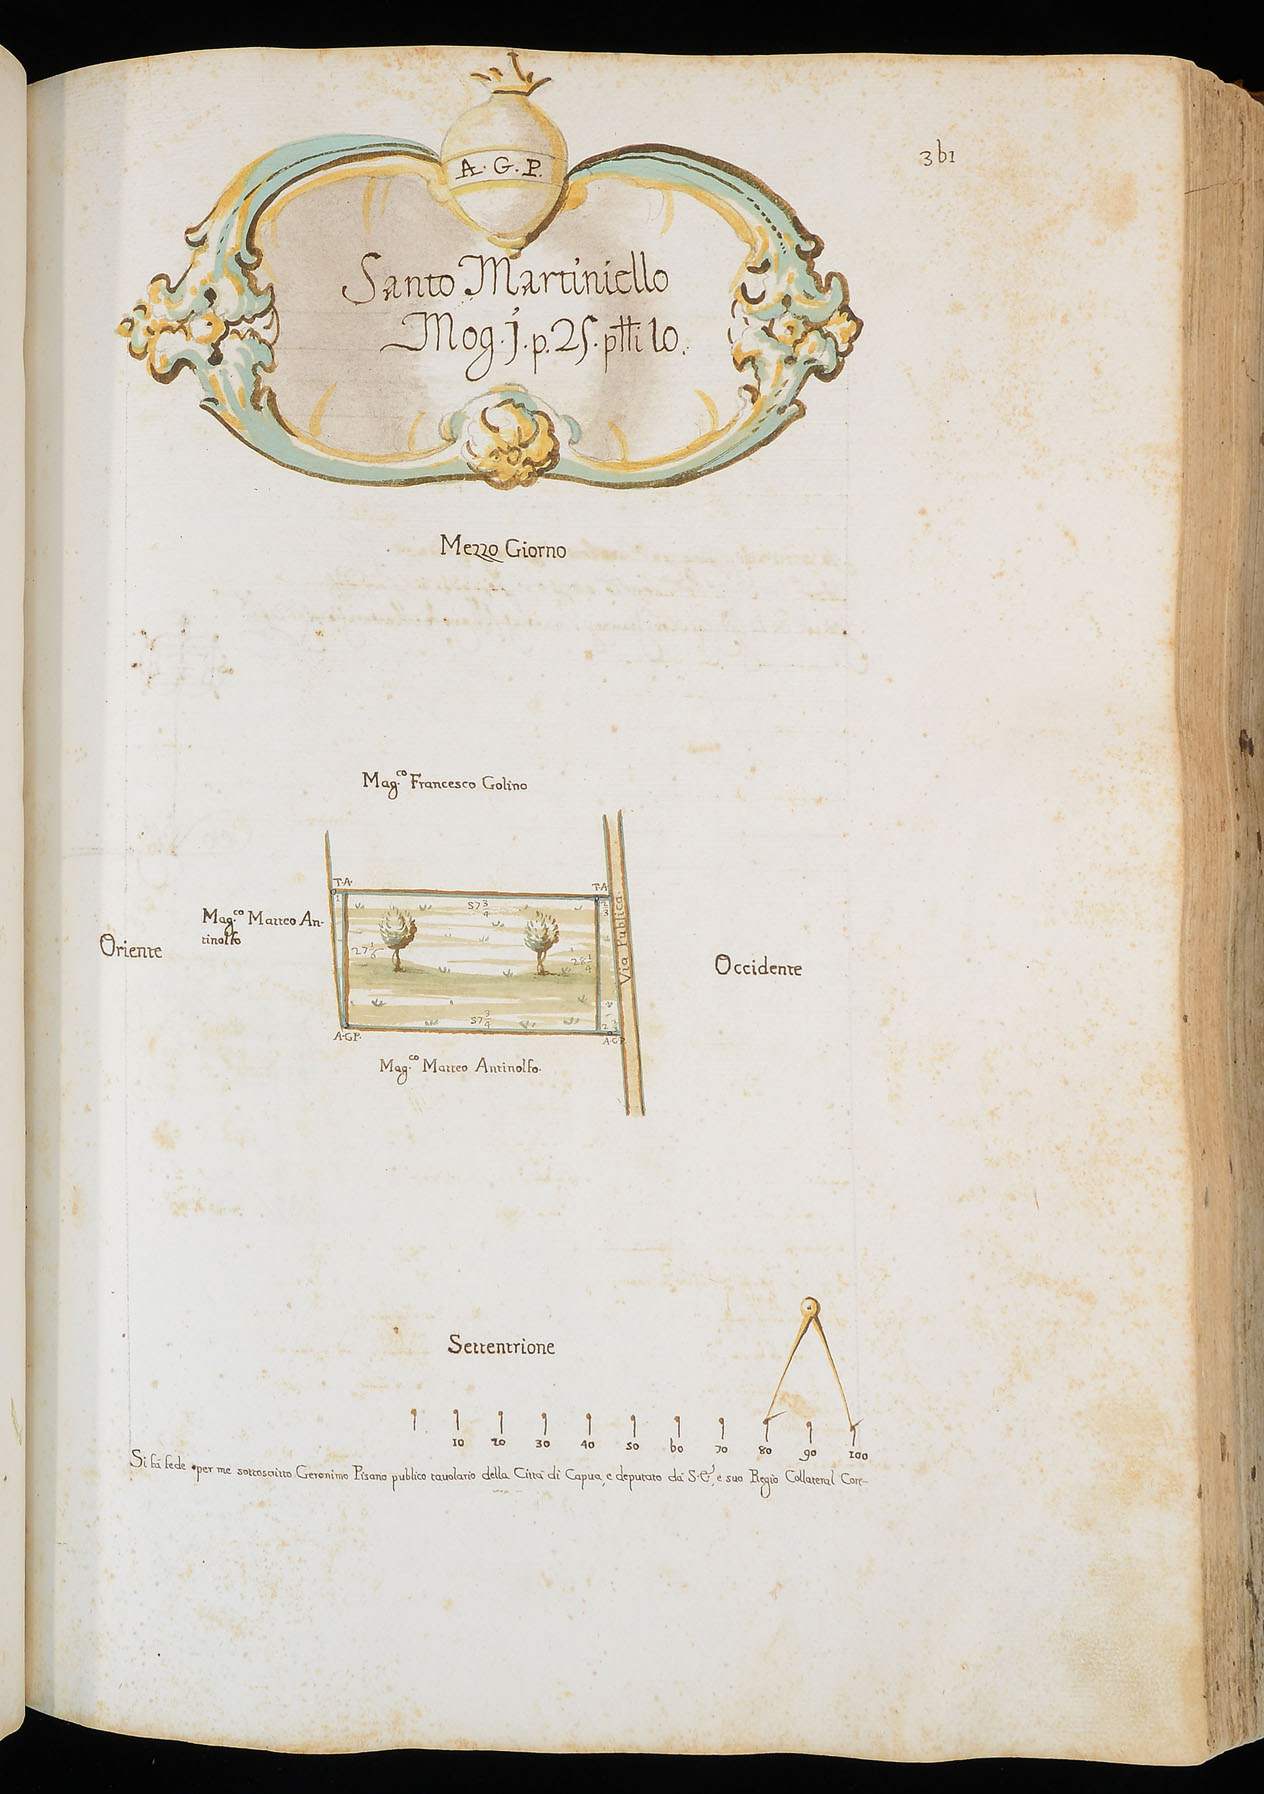 361
A. G. P.
Santo Martiniello
Mog. j. p. 25. ptti 10.
Mezzo Giorno
Mag.co Francesco Golino
T.A. T.A.
1 57 3/4 2 3
Mag.co Matteo An-
tinolfo
Oriente
27 1/6 28 1/4
Via Publica.
Occidente
57 3/4 2
A.G.P. A.G.P.
Mag.co Matteo Antinolfo.
Settentrione
10 20 30 40 50 60 70 80 90 100
Si fà fede per me sottoscritto Geronimo Pisano publico tavolario della Città di Capua, e deputato da S. E., e suo Regio Collateral Con-